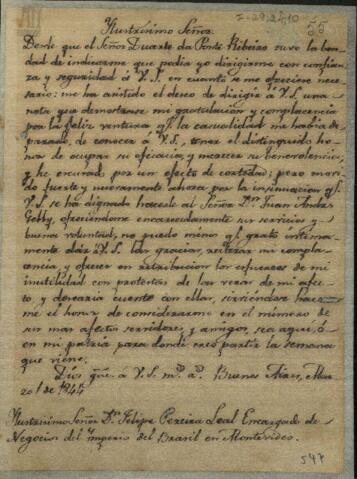 I-29,24,10
55
Ilustrísimo Señor.
Desde que el Señor Duarte da Ponte Ribeiro tuvo la bon-
dad de indicarme que podía yo dirigirme con confian-
za y seguridad á V.S. en cuanto se me ofreciere nece-
sario: me ha asistido el deseo de dirigir á V.S. una
nota que demostrase mi gratulacion y complacencia
por la feliz ventura qe. la casualidad me había de-
parado, de conocer á V.S., tener el distinguido ho-
nor de ocupar su eficacia, y merecer su benevolencia,
y he por un efecto de cortedad; pero movi-
do fuerte y nuevamente ahora por la insinuacion qe.
V.S. se ha dignado hacerle al Señor Dn. Juan Andrs.
Gelly, ofreciendome encarecidamente sus servicios y
buena voluntad, no puedo menos qe. grato íntima-
mente dar á V.S. las gracias, reiterar mi compla-
cencia, y ofrecer en retribucion los esfuerzos de mi
inutilidad con protestas de las veras de mi afec-
to, y desearia cuente con ellas, sirviendose hacer-
me el honor de considerarme en el número de
sus mas afectos servidores, y amigos, sea aquí, ó
en mi patria para donde creo partir la semana
que viene.
Dios gue. á V.S. ms. as. Buenos Aires, Mar-
zo 1 de 1844
Ilustrísimo Señor Dn. Felipe Pereira Leal Encargado de
Negocios del Imperio del Brasil en Montevideo.
547